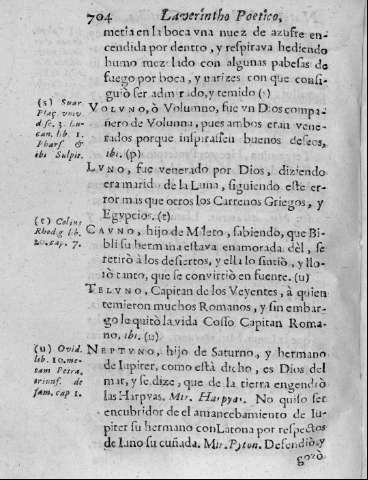 704 Laverintho Poetico,
metia en la boca vna nuez de azufre en-
cendida por dentro, y respirava hediendo
humo mezclado con algunas pabesas de
fuego por boca, y narizes con que consi-
guiò ser admirado, y temido (s)
VOLVNO, ò Volumno, fue vn Dios compa-
ñero de Volunna, pues ambos eran vene-
rados porque inspirassen buenos deseos,
ibi. (p)
LVNO, fue venerado por Dios, diziendo
era marido de la Luna, siguiendo este er-
ror mas que otros los Carrenos Griegos, y
Egypcios. (t)
CAVNO, hijo de Mileto, sabiendo, que Bi-
bli su hermana estava enamorada dèl, se
retirò à los desiertos, y ella lo sintiò, y llo-
rò tanto, que se convirtiò en fuente. (u)
TELVNO, Capitan de los Veyentes, à quien
temieron muchos Romanos, y sin embar-
go le quitò la vida Cosso Capitan Roma-
no, ibi. (u)
NEPTVNO, hijo de Saturno, y hermano
de Iupiter, como està dicho, es Dios del
mar, y se dize, que de la tierra engendrò
las Harpyas. Mir. Harpyas. No quiso ser
encubridor de el amancebamiento de Iu-
piter su hermano con Latona por respectos
de Iuno su cuñada. Mir. Pyton. Defendiò, y
gozò
(s) Suar.
Plaç. vniv.
d.sc. 3. Lu-
can. lib. 1.
Phars &
ibi Sulpit.
(t) Celius
Rhodig lib.
20. cap. 7.
(u) Ovid.
lib. 10. me-
tam Petra.
triunf. de
fam. cap 1.